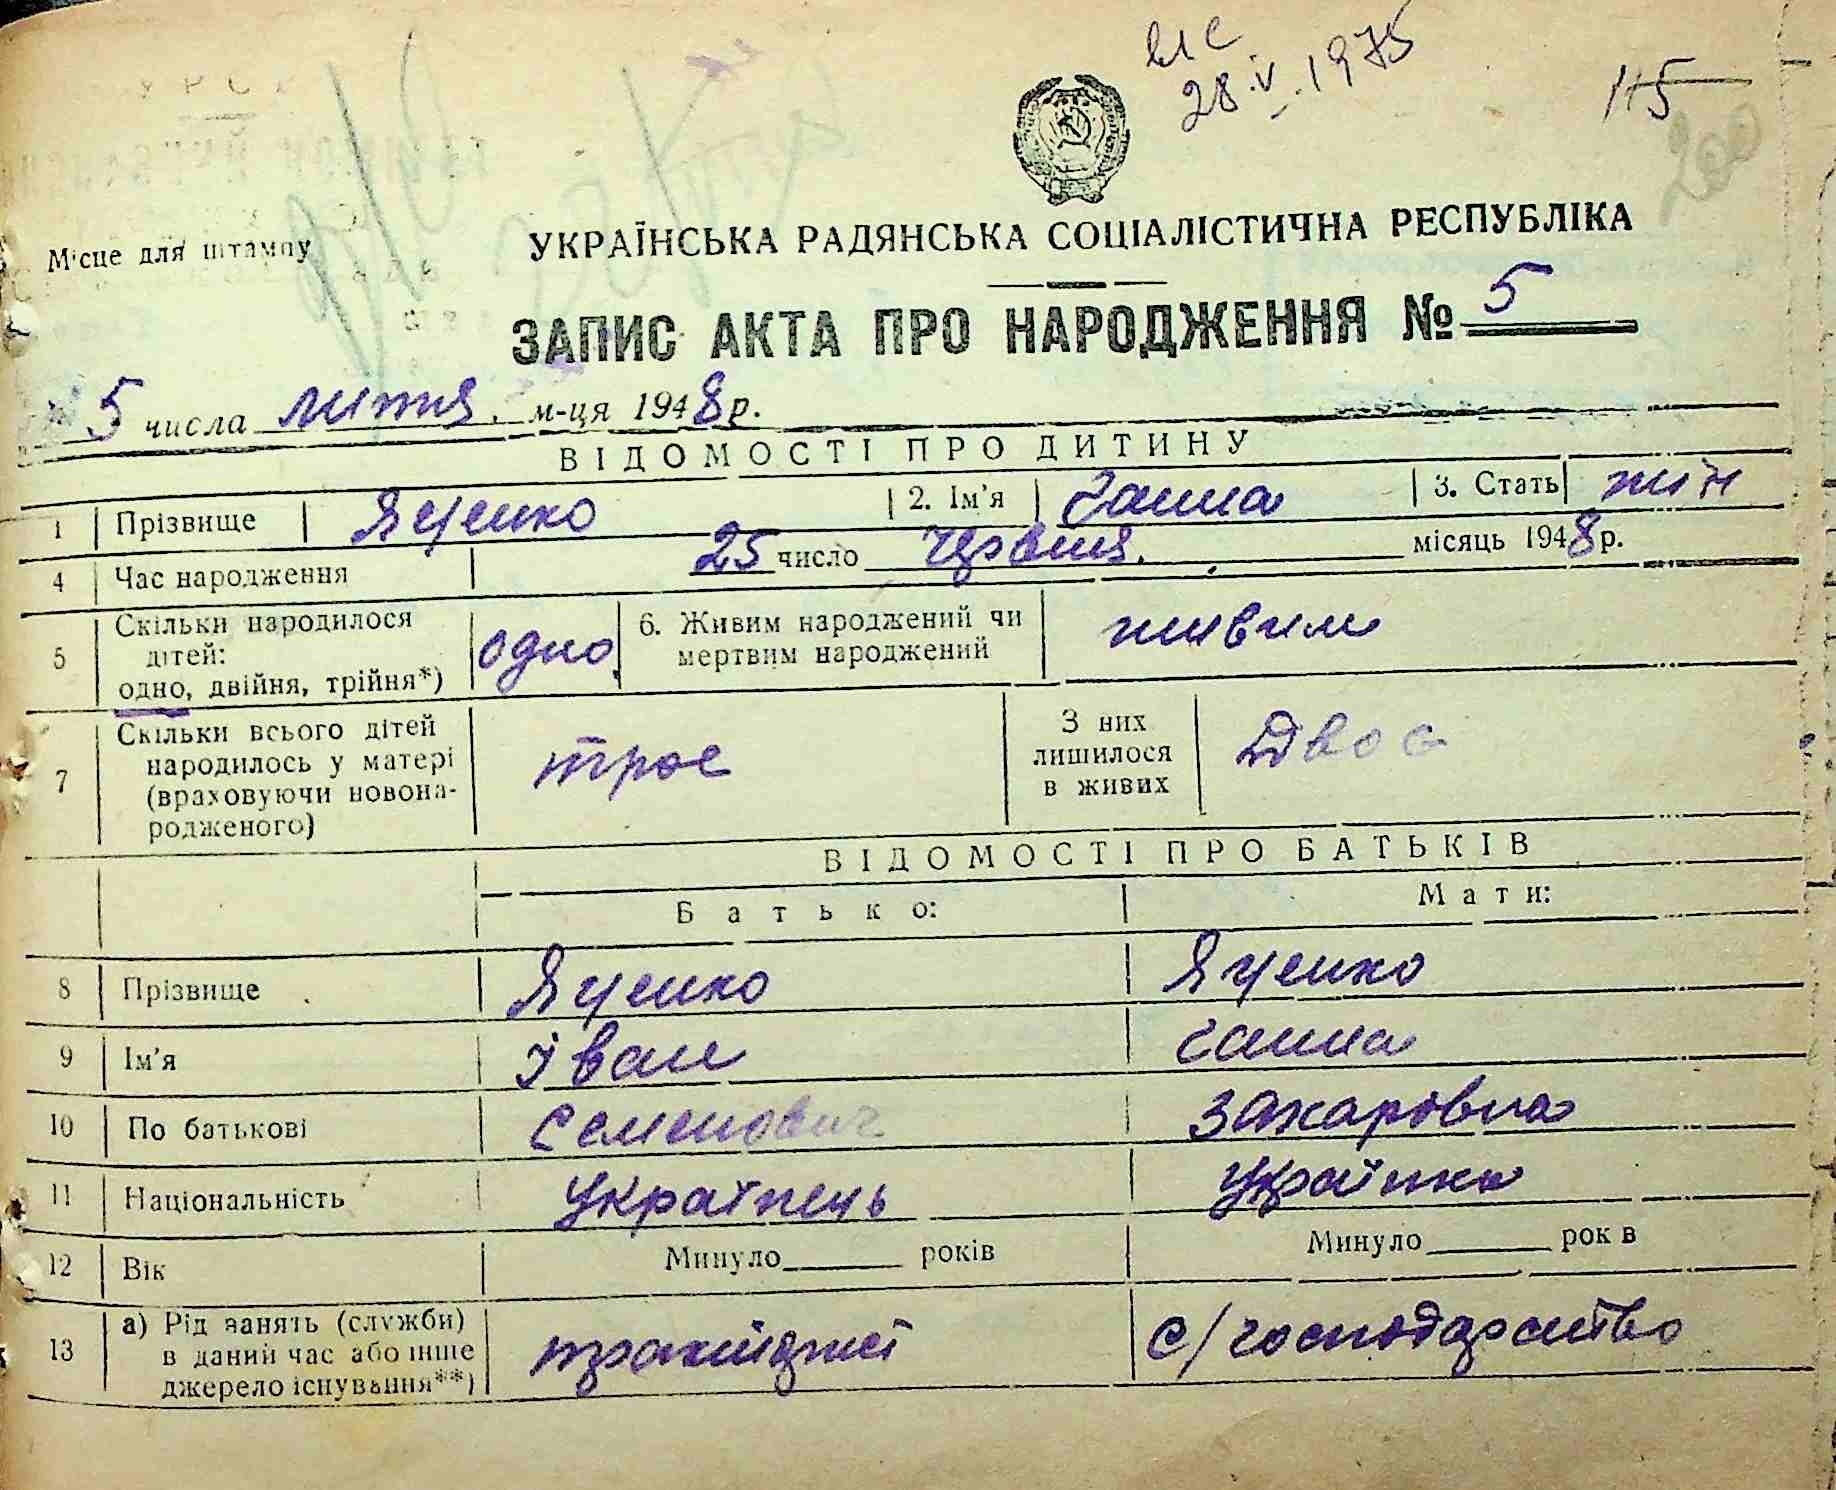 28.V.1975
115
200
УКРАЇНСЬКА РАДЯНСЬКА СОЦІАЛІСТИЧНА РЕСПУБЛІКА
Місце для штампу
ЗАПИС АКТА ПРО НАРОДЖЕННЯ № 5
5 числа липня. м-ця 1948 р.
ВІДОМОСТІ ПРО ДИТИНУ
1 Прізвище Яценко 2. Ім'я Ганна 3. Стать жін
4 Час народження 25 число червня. місяць 1948 р.
5 Скільки народилося дітей: одно, двійня, трійня*) одно 6. Живим народжений чи мертвим народжений живим
7 Скільки всього дітей народилось у матері (враховуючи новонародженого) троє З них лишилося в живих Двоє
ВІДОМОСТІ ПРО БАТЬКІВ
Батько: Мати:
8 Прізвище Яценко Яценко
9 Ім'я Іван Ганна
10 По батькові Семенович Захаровна
11 Національність Українець Українка
12 Вік Минуло ______ років Минуло ______ років
13 а) Рід занять (служби) в даний час або інше джерело існування**) с/господарство